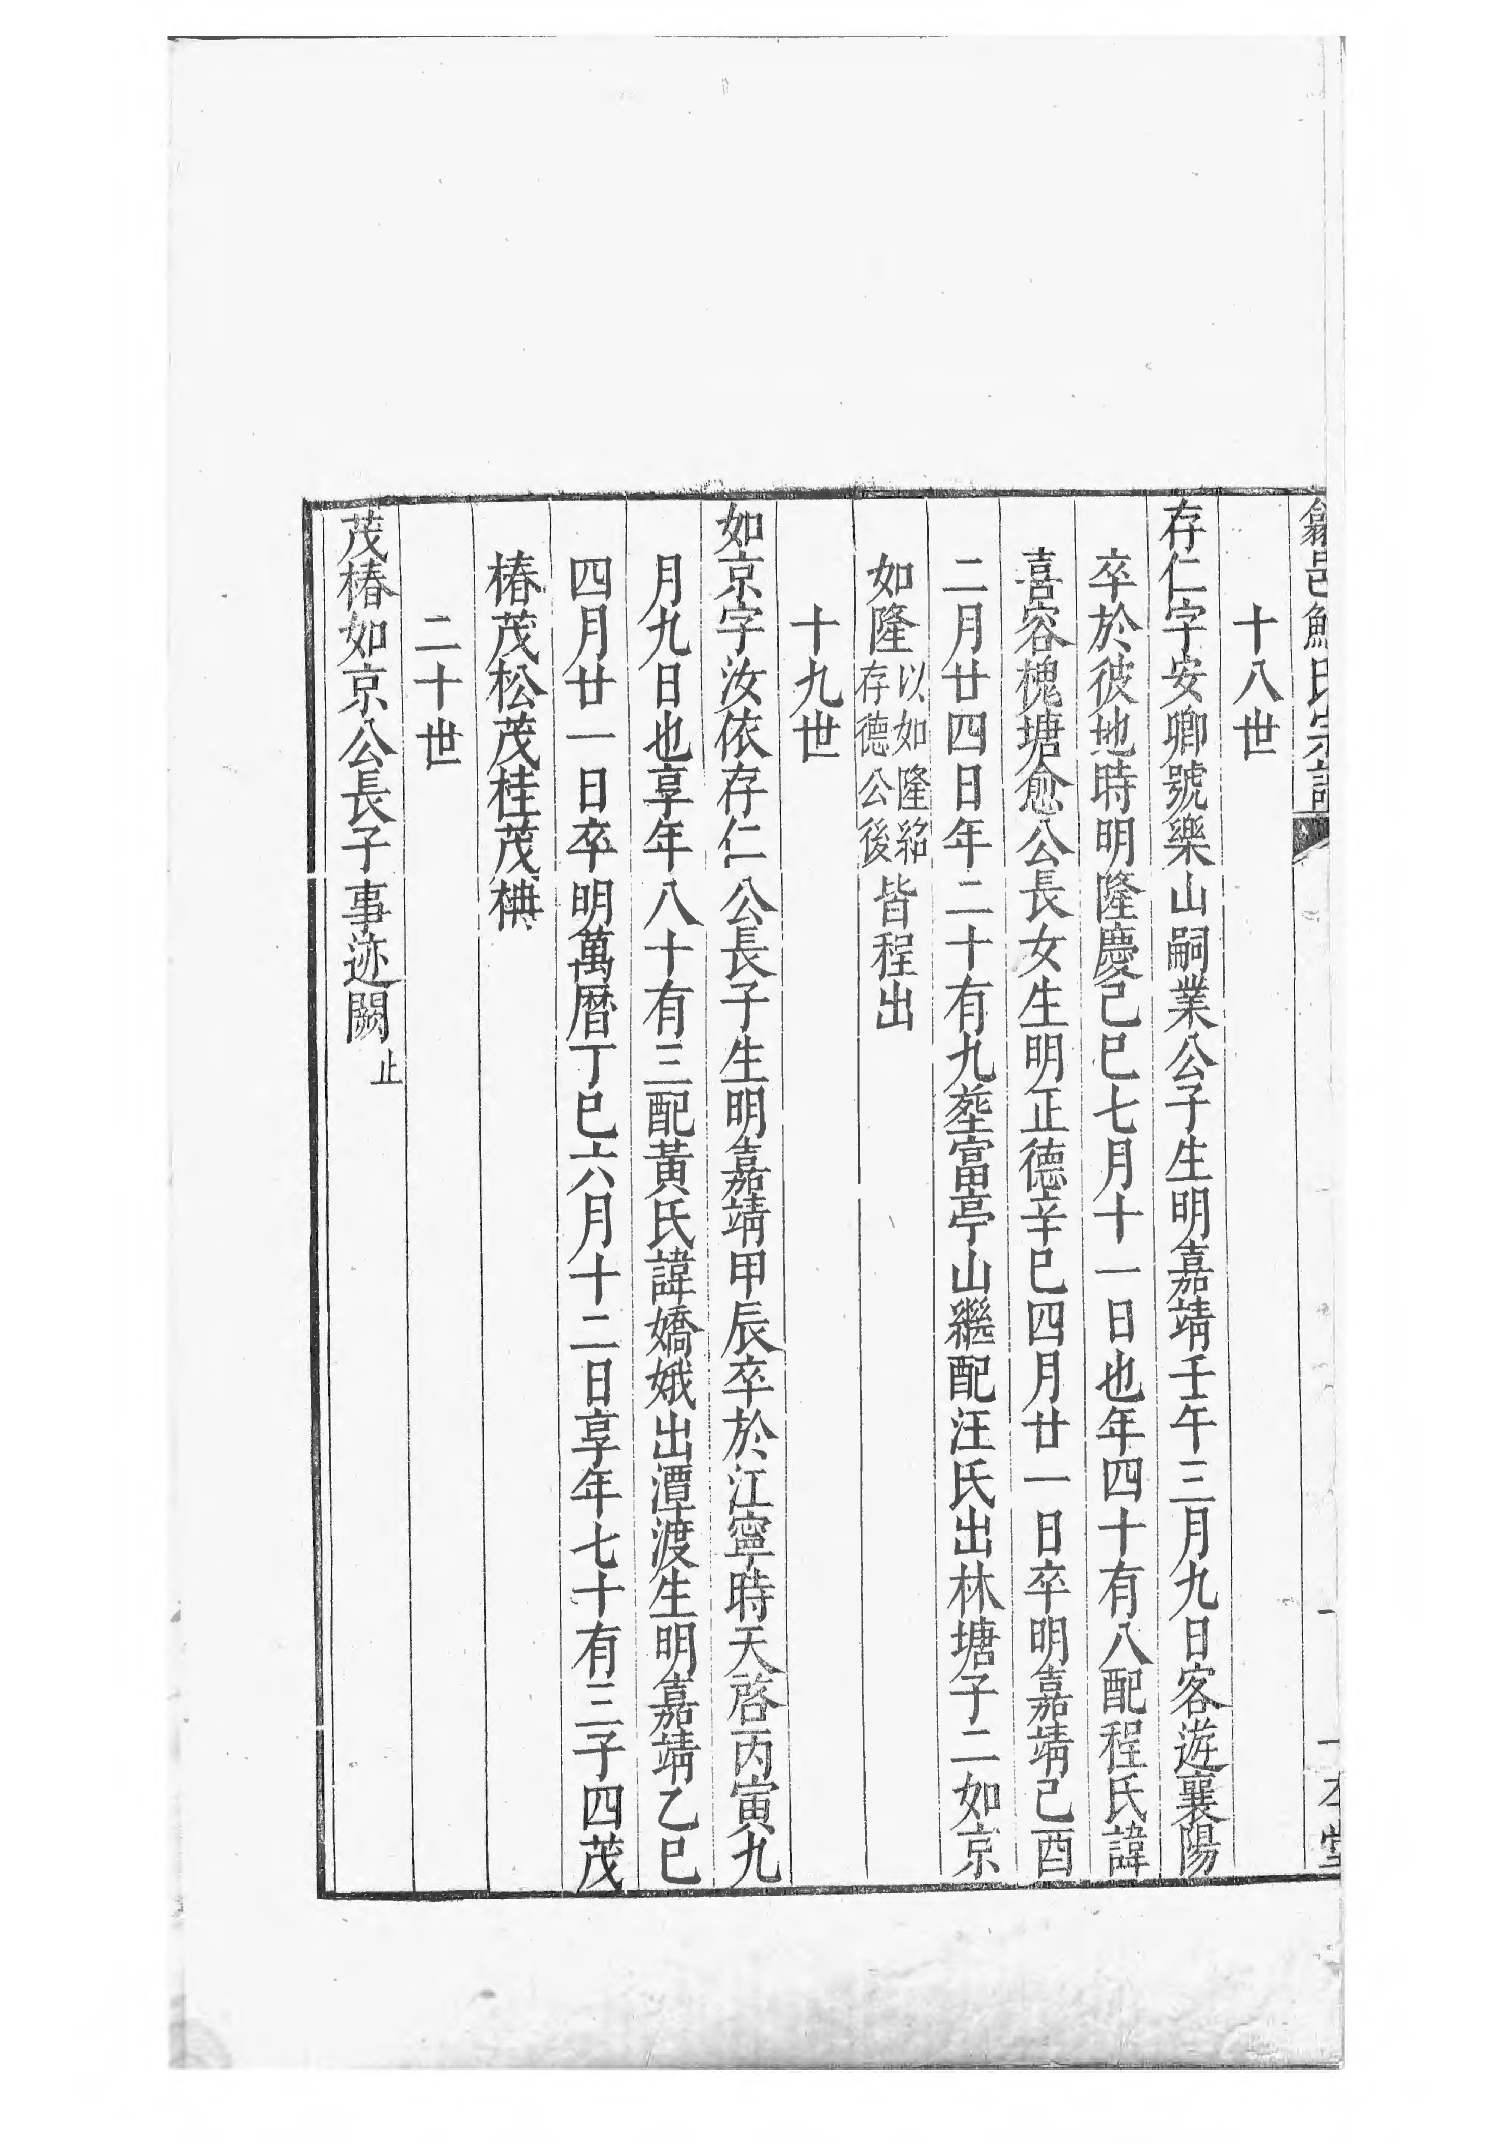 歙邑鮑氏宗譜
十八世
存仁字安卿號樂山嗣業公子生明嘉靖壬午三月九日客遊襄陽
卒於彼地時明隆慶己巳七月十一日也年四十有八配程氏諱
喜容槐塘愈公長女生明正德辛巳四月廿一日卒明嘉靖己酉
二月廿四日年二十有九塟富亭山繼配汪氏出林塘子二如京
如隆以如隆紹存德公後皆程出
十九世
如京字汝依存仁公長子生明嘉靖甲辰卒於江寧時天啓丙寅九
月九日也享年八十有三配黃氏諱嬌娥出潭渡生明嘉靖乙巳
四月廿一日卒明萬曆丁巳六月十二日享年七十有三子四茂
椿茂松茂桂茂
二十世
茂椿如京公長子事迹闕止